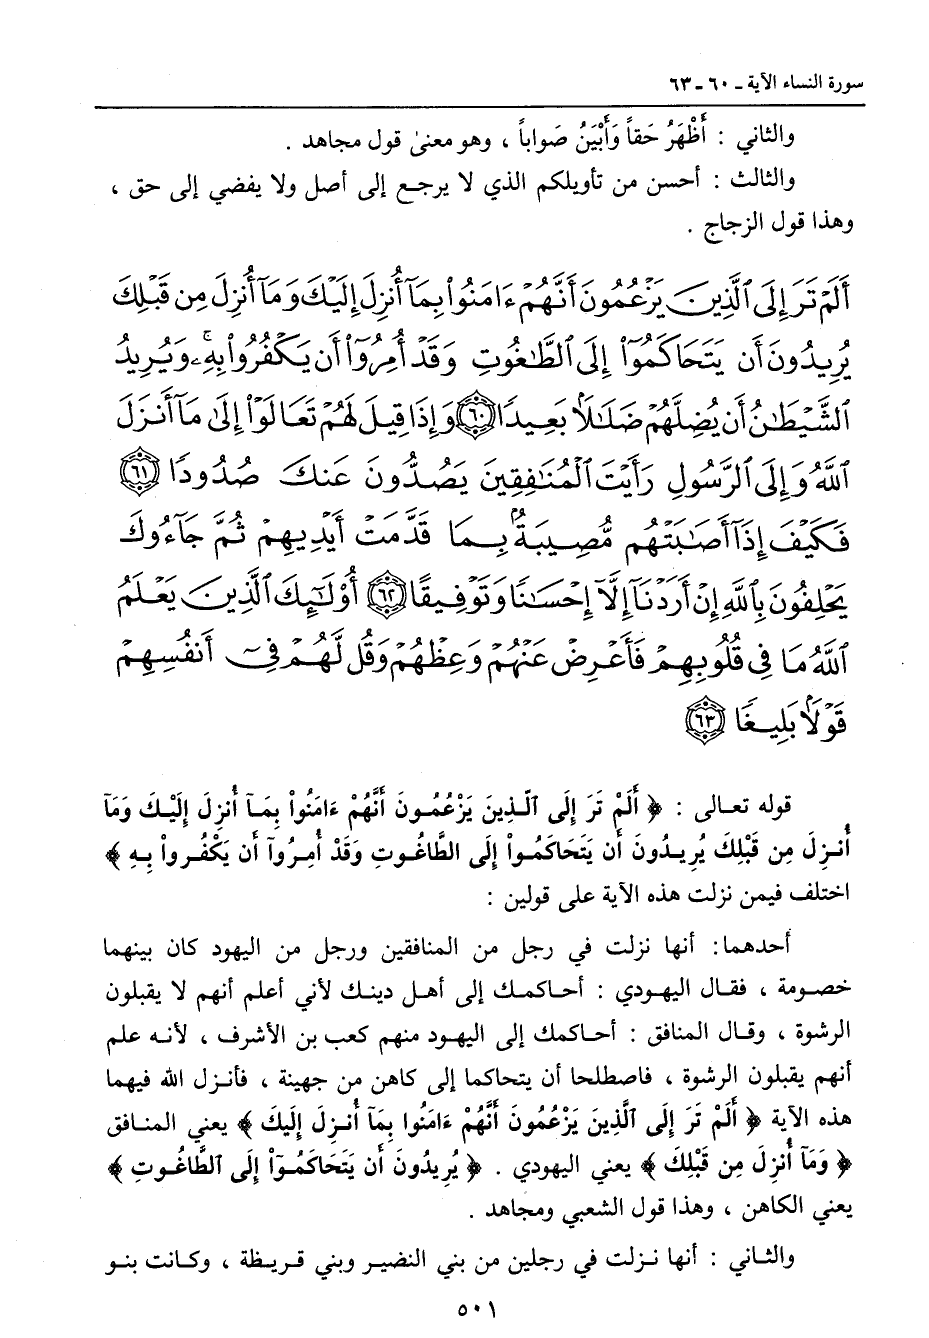 سورة النساء الآية ـ ٦٠ ـ ٦٣
والثاني : أَظْهَرُ حَقاً وَأَبْيَنُ صَواباً ، وهو معنىٰ قول مجاهد .
والثالث : أحسن من تأويلكم الذي لا يرجع إلى أصل ولا يفضي إلى حق ،
وهذا قول الزجاج .
أَلَمْ تَرَ إِلَى ٱلَّذِينَ يَزْعُمُونَ أَنَّهُمْ ءَامَنُوا۟ بِمَآ أُنزِلَ إِلَيْكَ وَمَآ أُنزِلَ مِن قَبْلِكَ
يُرِيدُونَ أَن يَتَحَاكَمُوٓا۟ إِلَى ٱلطَّٰغُوتِ وَقَدْ أُمِرُوٓا۟ أَن يَكْفُرُوا۟ بِهِۦ وَيُرِيدُ
ٱلشَّيْطَٰنُ أَن يُضِلَّهُمْ ضَلَٰلًۢا بَعِيدًا ٦٠ وَإِذَا قِيلَ لَهُمْ تَعَالَوْا۟ إِلَىٰ مَآ أَنزَلَ
ٱللَّهُ وَإِلَى ٱلرَّسُولِ رَأَيْتَ ٱلْمُنَٰفِقِينَ يَصُدُّونَ عَنكَ صُدُودًا ٦١
فَكَيْفَ إِذَآ أَصَٰبَتْهُم مُّصِيبَةٌۢ بِمَا قَدَّمَتْ أَيْدِيهِمْ ثُمَّ جَآءُوكَ
يَحْلِفُونَ بِٱللَّهِ إِنْ أَرَدْنَآ إِلَّآ إِحْسَٰنًا وَتَوْفِيقًا ٦٢ أُو۟لَٰٓئِكَ ٱلَّذِينَ يَعْلَمُ
ٱللَّهُ مَا فِى قُلُوبِهِمْ فَأَعْرِضْ عَنْهُمْ وَعِظْهُمْ وَقُل لَّهُمْ فِىٓ أَنفُسِهِمْ
قَوْلًۢا بَلِيغًا ٦٣
قوله تعالى : ﴿ أَلَمْ تَرَ إِلَى ٱلَّذِينَ يَزْعُمُونَ أَنَّهُمْ ءَامَنُواْ بِمَآ أُنزِلَ إِلَيْكَ وَمَا
أُنزِلَ مِن قَبْلِكَ يُرِيدُونَ أَن يَتَحَاكَمُواْ إِلَى الطَّاغُوتِ وَقَدْ أُمِرُوٓاْ أَن يَكْفُرواْ بِهِ ﴾
اختلف فيمن نزلت هذه الآية على قولين :
أحدهما: أنها نزلت في رجل من المنافقين ورجل من اليهود كان بينهما
خصومة ، فقال اليهودي : أحاكمك إلى أهل دينك لأني أعلم أنهم لا يقبلون
الرشوة ، وقال المنافق : أحاكمك إلى اليهود منهم كعب بن الأشرف ، لأنه علم
أنهم يقبلون الرشوة ، فاصطلحا أن يتحاكما إلى كاهن من جهينة ، فأنزل الله فيهما
هذه الآية ﴿ أَلَمْ تَرَ إِلَى ٱلَّذِينَ يَزْعُمُونَ أَنَّهُمْ ءَامَنُوا بِمَآ أُنزِلَ إِلَيكَ ﴾ يعني المنافق
﴿ وَمَآ أُنزِلَ مِن قَبْلِكَ ﴾ يعني اليهودي . ﴿ يُرِيدُونَ أَن يَتَحَاكَمُوٓاْ إِلَى ٱلطَّاغُوتِ ﴾
يعني الكاهن ، وهذا قول الشعبي ومجاهد .
والثاني : أنها نزلت في رجلين من بني النضير وبني قريظة ، وكانت بنو
٥٠١